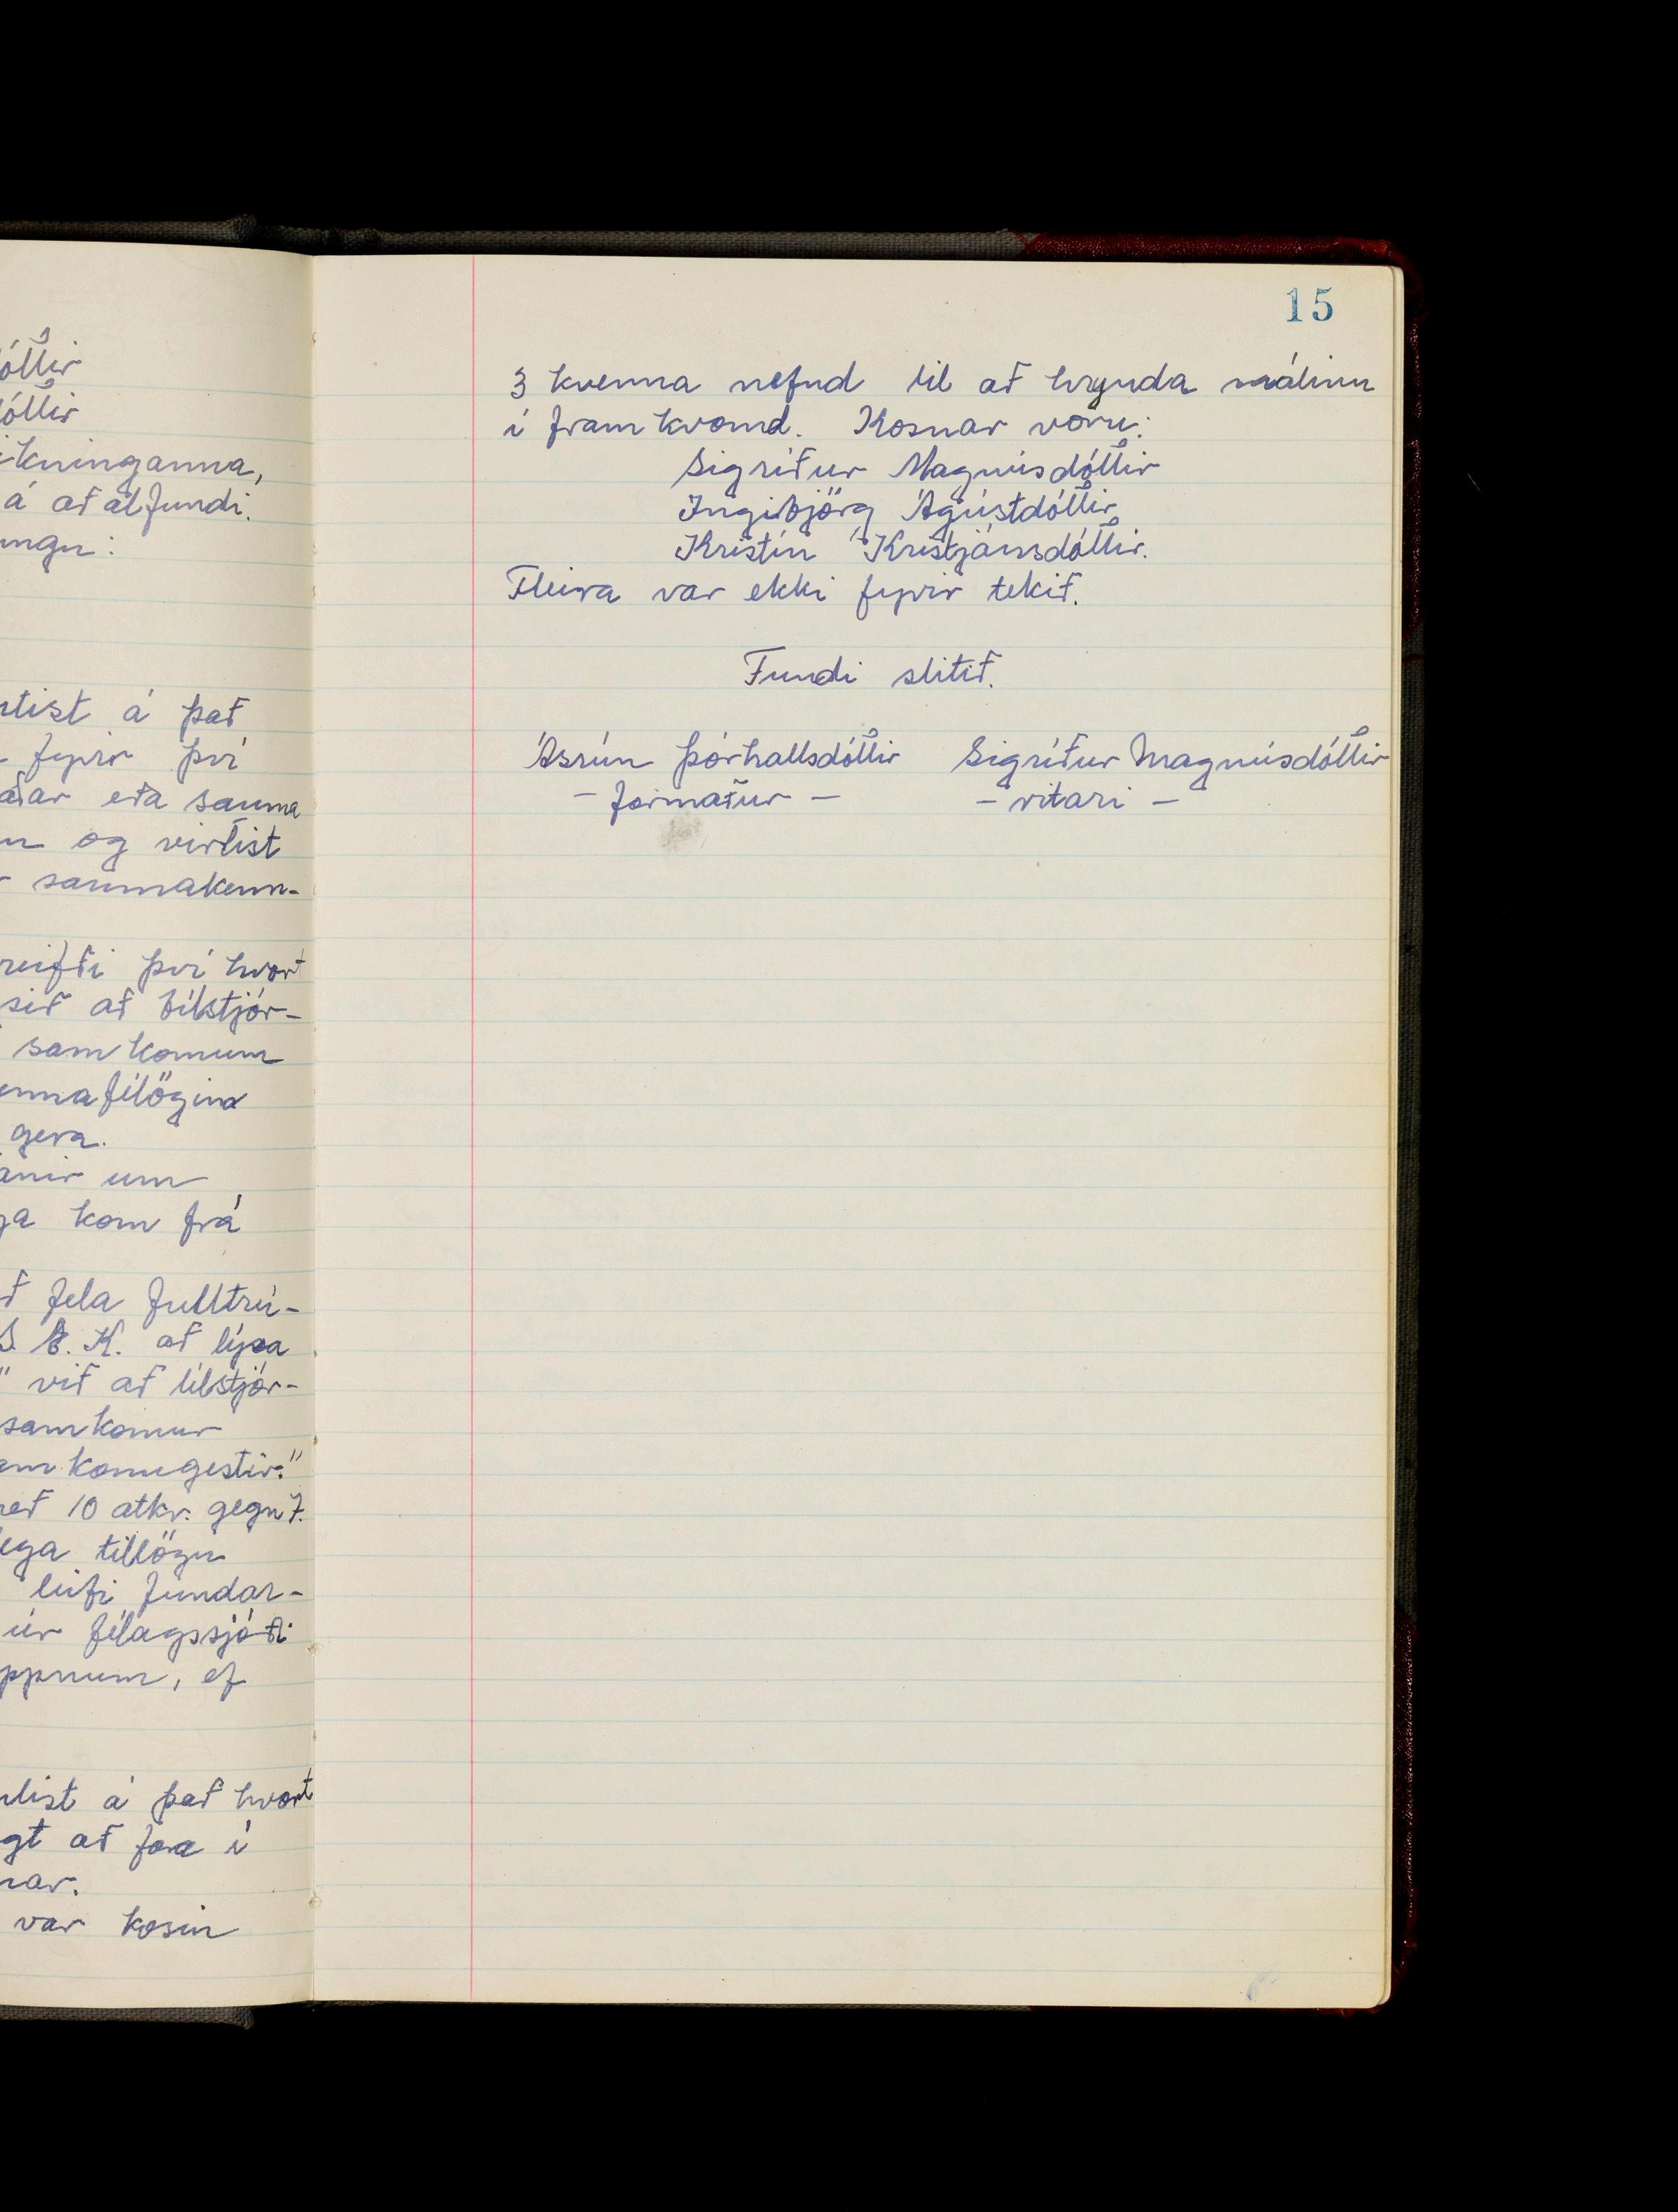 óttir
dóttir
ikninganna,
á að álfundi.
ungu:
rtist á það
fyrir því
aðar eða sauma
og virtist
saumakenn-
reifði því hvort
sið að bílstjór-
samkomum
ennafélögin
gera.
anir um
ga kom frá
ð fela fulltrú-
S. E. K. að lýsa
" við að bílstjór-
samkomur
amkomugestir."
með 10 atkv. gegn 7.
lega tillögu
leifi fundar-
úr félagssjóði
ppnum, ef
rtist á það hvort
gt að fara í
nar.
var kosin
15
3 kvenna nefnd til að hrynda málinu
í framkvomd. Kosnar voru:
Sigríður Magnúsdóttir
Ingibjörg Ágústdóttir
Kristín Kristjánsdóttir.
Fleira var ekki fyrir tekið.
Fundi slitið.
Ásrún Þórhallsdóttir Sigríður Magnúsdóttir
- formaður - - ritari -